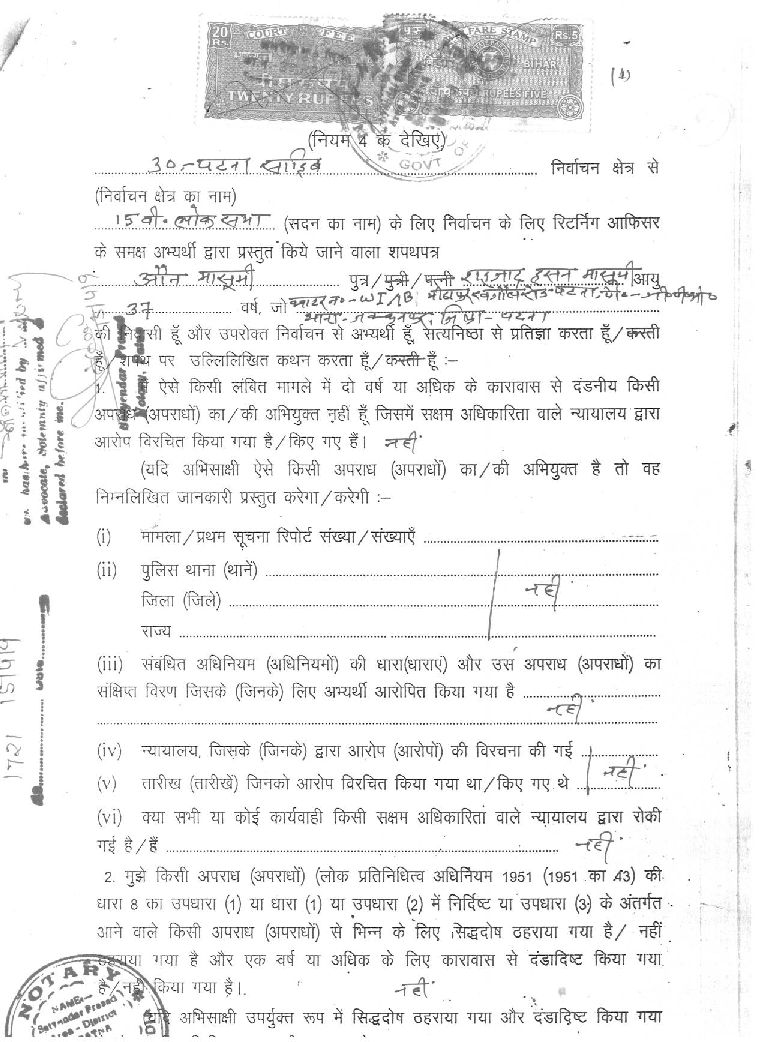 20 COURT FEE WELFARE STAMP Rs.5
Rs. BIHAR
TWENTY RUPEES RUPEES FIVE
(1)
GOVT OF
(नियम 4 क देखिए)
30-पटना साहिब निर्वाचन क्षेत्र से
(निर्वाचन क्षेत्र का नाम)
15वी. लोक सभा (सदन का नाम) के लिए निर्वाचन के लिए रिटर्निग आफिसर
के समक्ष अभ्यर्थी द्वारा प्रस्तुत किये जाने वाला शपथपत्र
औन मासूमी पुत्र/पुत्री/पत्नी हसन मासूमी आयु
37 वर्ष, जो
थाना- जिला- पटना
की निवासी हूँ और उपरोक्त निर्वाचन से अभ्यर्थी हूँ, सत्यनिष्ठा से प्रतिज्ञा करता हूँ/करती
हूँ/शपथ पर उल्लिलिखित कथन करता हूँ/करती हूँ :–
1. मै ऐसे किसी लंबित मागले में दो वर्ष या अधिक के कारावास से दंडनीय किसी
अपराध (अपराधों) का/की अभियुक्त नहीं हूँ जिसमें सक्षम अधिकारिता वाले न्यायालय द्वारा
आरोप विरचित किया गया है/किए गए हैं। नहीं
(यदि अभिसाक्षी ऐसे किसी अपराध (अपराधों) का/की अभियुक्त है तो वह
निम्नलिखित जानकारी प्रस्तुत करेगा/करेगी :–
(i) मामला/प्रथम सूचना रिपोर्ट संख्या/संख्याएँ
(ii) पुलिस थाना (थानें)
नहीं
जिला (जिले)
राज्य
(iii) संबंधित अधिनियम (अधिनियमों) की धारा(धाराएं) और उस अपराध (अपराधों) का
संक्षिप्त विरण जिसके (जिनके) लिए अभ्यर्थी आरोपित किया गया है
नहीं
(iv) न्यायालय, जिसके (जिनके) द्वारा आरोप (आरोपों) की विरचना की गई
नहीं
(v) तारीख (तारीखें) जिनको आरोप विरचित किया गया था/किए गए थे
(vi) क्या सभी या कोई कार्यवाही किसी सक्षम अधिकारिता वाले न्यायालय द्वारा रोकी
गई है/हैं नहीं
2. गुझे किसी अपराध (अपराधों) (लोक प्रतिनिधित्व अधिनियम 1951 (1951 का 43) की
धारा 8 का उपधारा (1) या धारा (1) या उपधारा (2) में निर्दिष्ट या उपधारा (3) के अंतर्गत
आने वाले किसी अपराध (अपराधों) से भिन्न के लिए सिद्धदोष ठहराया गया है/ नहीं
ठहराया गया है और एक वर्ष या अधिक के लिए कारावास से दंडादिष्ट किया गया
है/नहीं किया गया है।. नहीं
यदि अभिसाक्षी उपर्युक्त रूप में सिद्धदोष ठहराया गया और दंडादिष्ट किया गया
Advocate, Solemnly affirmed &
declared before me.
1721 15/4/9
NOTARY
NAME:-
Satyendar Prasad
Area - District
PATNA